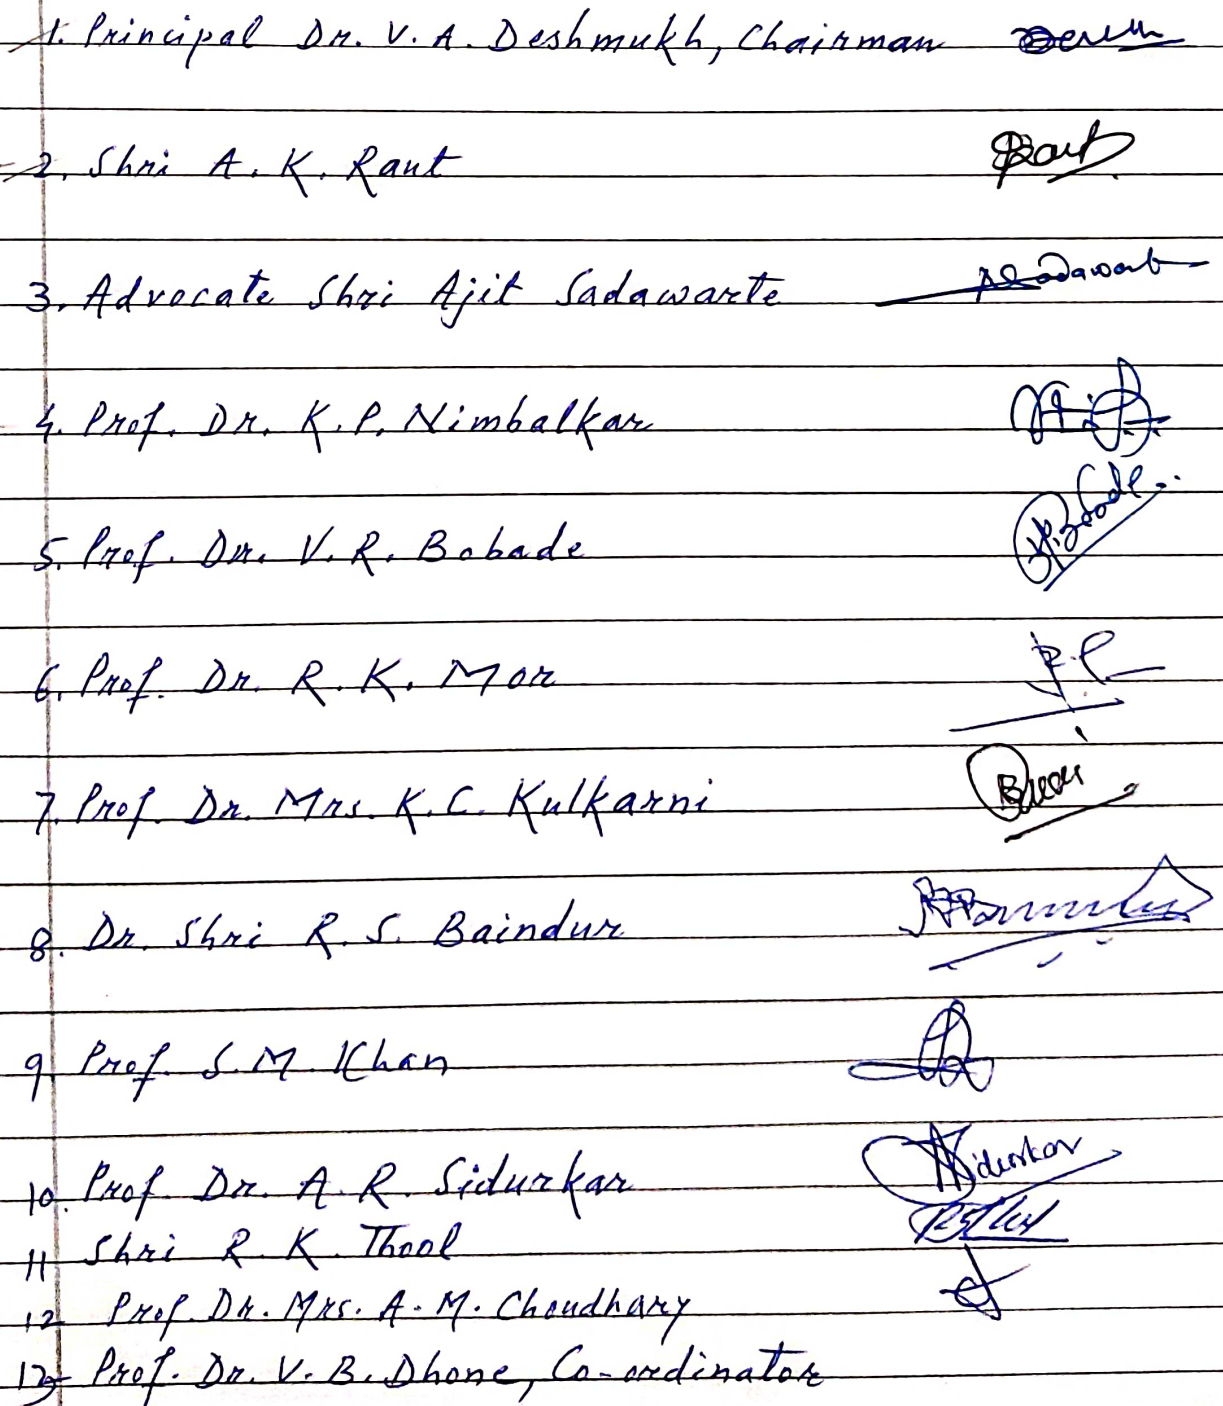 1. Principal Dr. V. A. Deshmukh, Chairman
2. Shri A. K. Raut Raut
3. Advocate Shri Ajit Sadawarte
4. Prof. Dr. K. P. Nimbalkar
5. Prof. Dr. V. R. Bobade
6. Prof. Dr. R. K. Mor
7. Prof. Dr. Mrs. K. C. Kulkarni
8. Dr. Shri R. S. Baindur
9 Prof. S. M. Khan
10. Prof. Dr. A. R. Sidurkar Sidurkar
11 Shri R. K. Thool
12 Prof. Dr. Mrs. A. M. Choudhary
13 Prof. Dr. V. B. Dhone, Co-ordinator